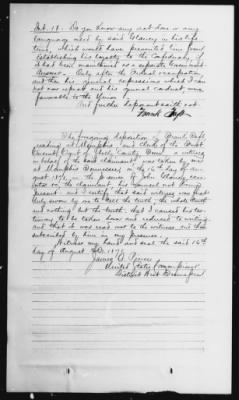 Int. 17. Do you know any act done or any
language used by said Clancey in his life
time, which would have prevented him from
establishing his loyalty to the Confederacy, if
had been maintained as a separate Government
Answer. Only after the actual occupation,
and then his general expressions which I can
not now repeat and his general conduct was
favorable to the Union.
And further deponent saith not.
Frank
The foregoing deposition of Frank
residing at Memphis, and clerk of the
Court of Shelby County, a witness
in behalf of the said claimant, was taken by me
at Memphis Tennessee, on the 16th day of Au-
gust 187, in the presence of John Clancey, exec-
utor &c, the claimant, his counsel not being
present. And I certify that said witness was first
duly sworn by me to tell the truth, the whole truth
and nothing but the truth. That I caused his tes-
timony to be taken down and reduced to writing
and that it was read over to the witness, and
subscribed by him in my presence.
Witness my hand and seal the said 16th
day of August A.D. 187
James
United States Commissioner
District West Tennessee